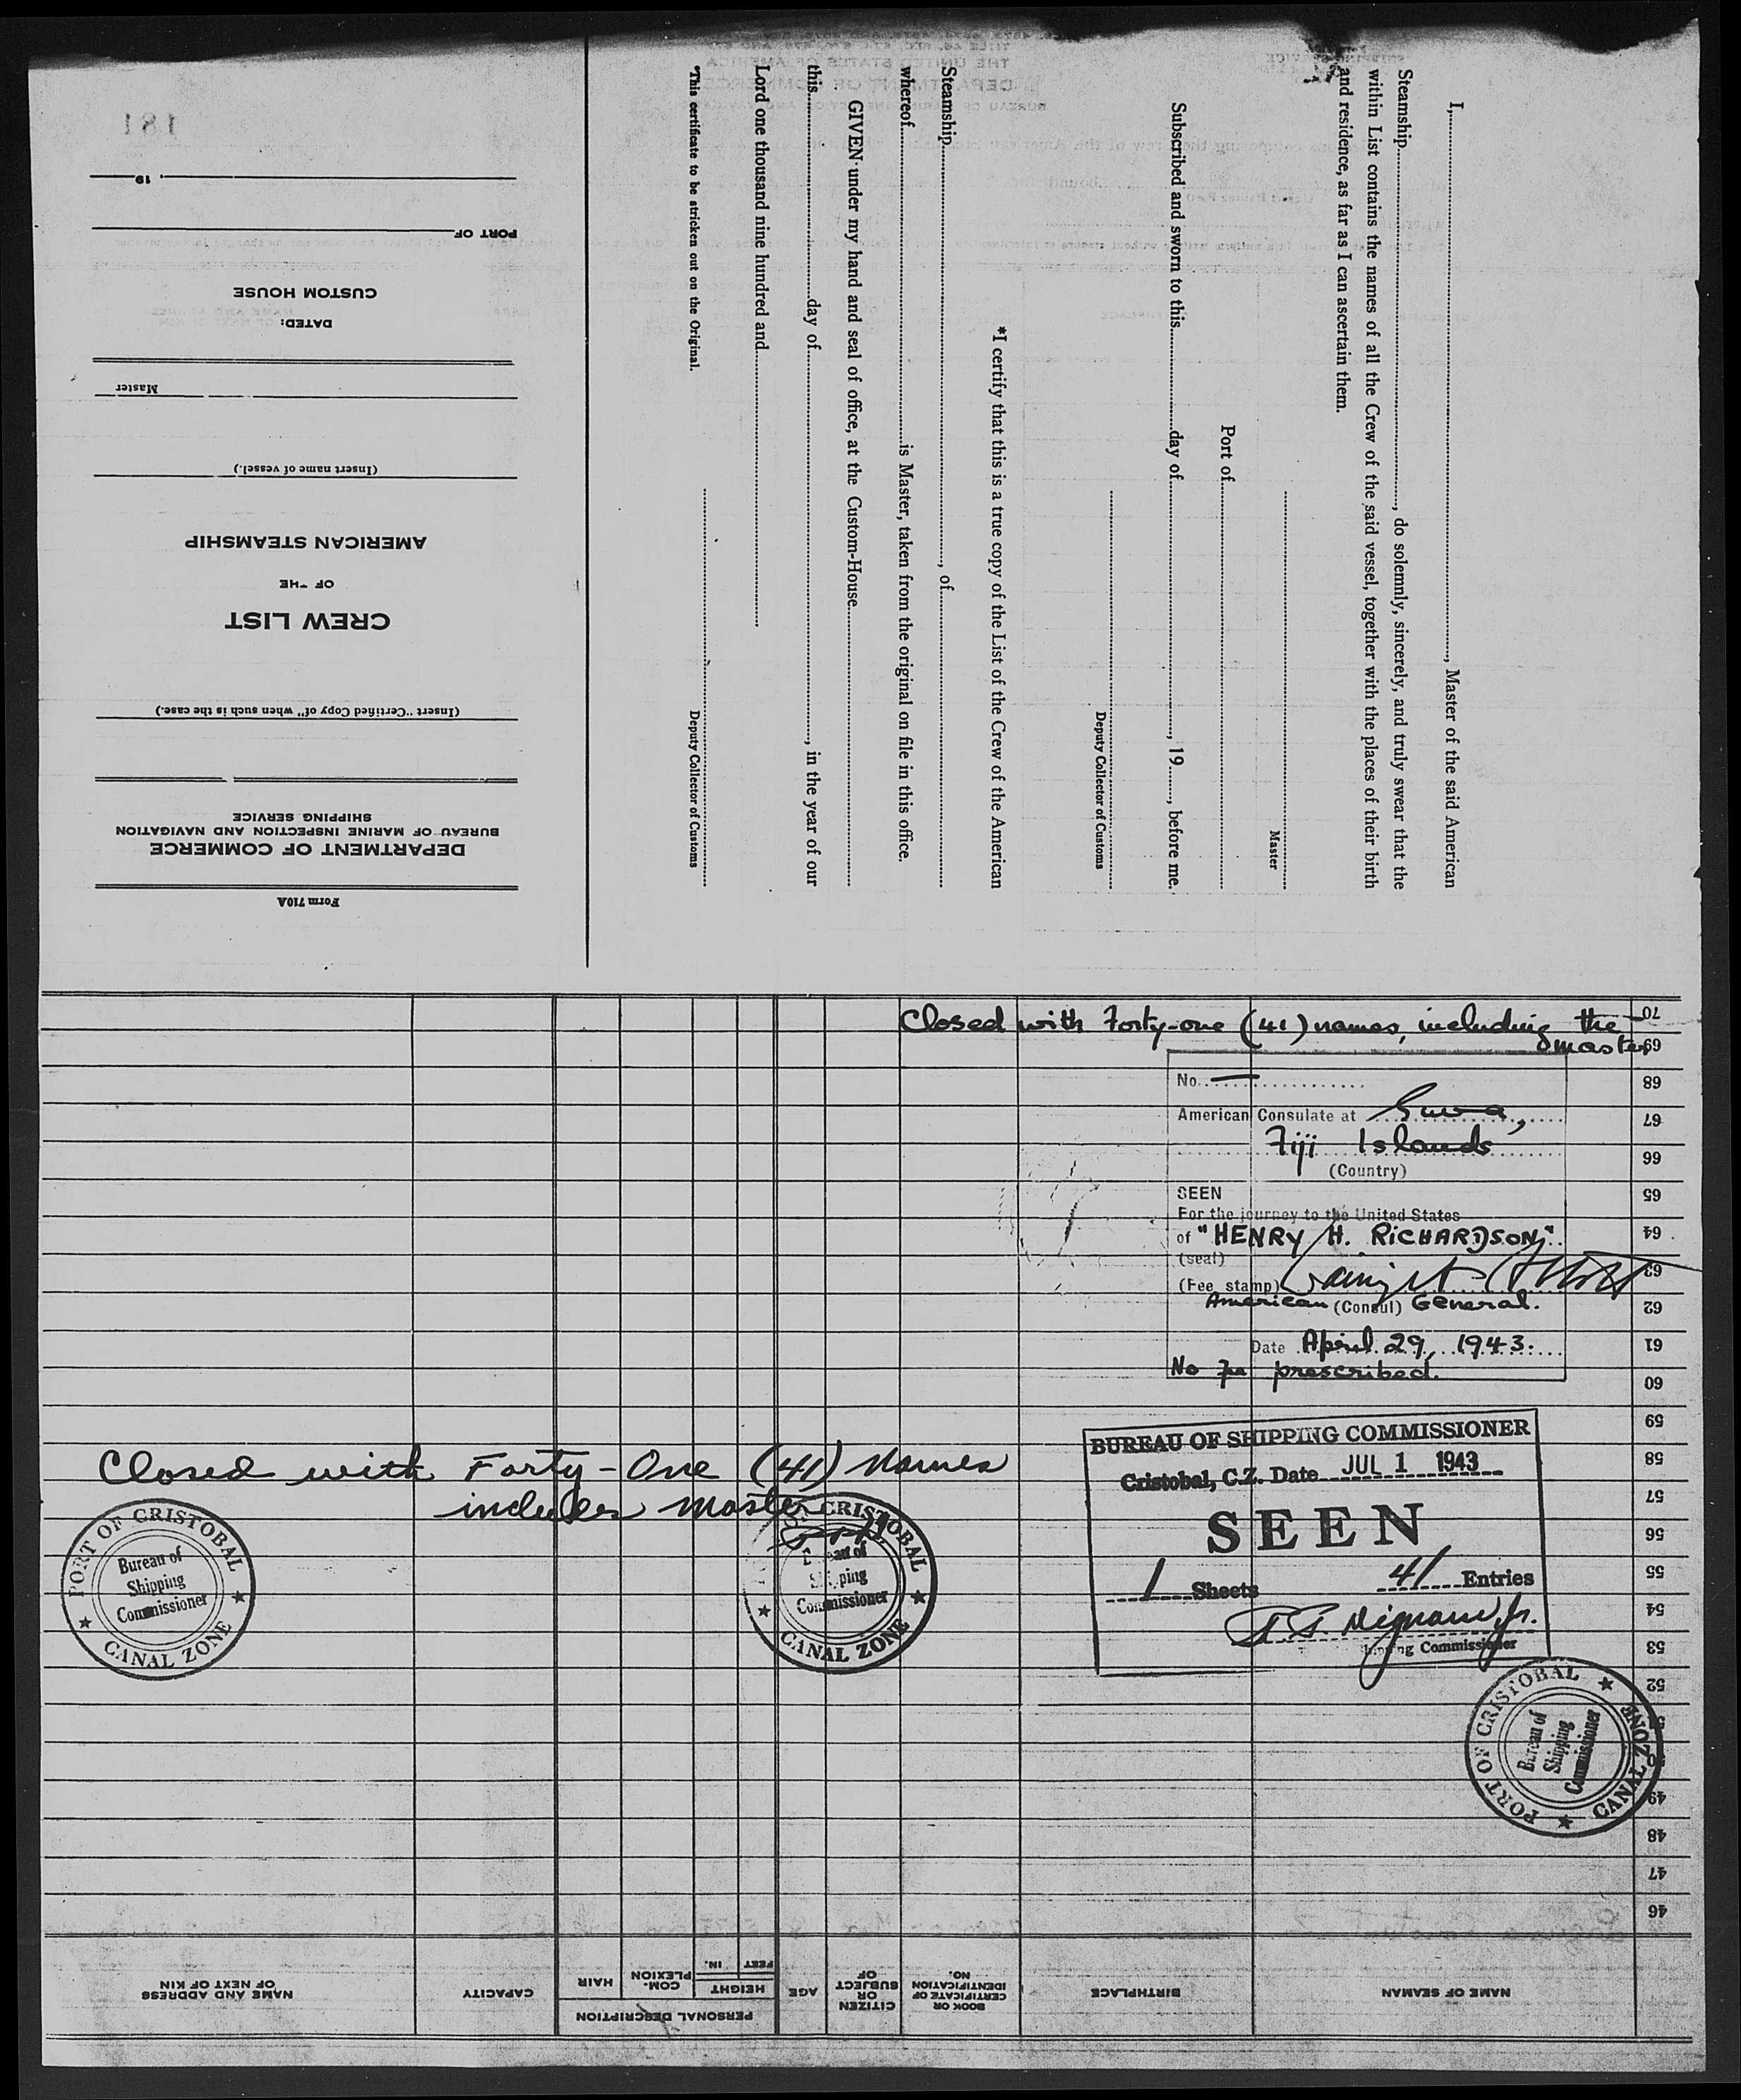 181
19
PORT OF
CUSTOM HOUSE
DATED:
Master
(Insert name of vessel.)
AMERICAN STEAMSHIP
OF THE
CREW LIST
(Insert "Certified Copy of" when such is the case.)
SHIPPING SERVICE
BUREAU OF MARINE INSPECTION AND NAVIGATION
DEPARTMENT OF COMMERCE
Form 710A
I,........, Master of the said American
Steamship........, do solemnly, sincerely, and truly swear that the
within List contains the names of all the Crew of the said vessel, together with the places of their birth
and residence, as far as I can ascertain them.
Master
Port of
Subscribed and sworn to this........day of........, 19......, before me.
Deputy Collector of Customs
*I certify that this is a true copy of the List of the Crew of the American
Steamship........, of........
whereof........is Master, taken from the original on file in this office.
GIVEN under my hand and seal of office, at the Custom-House........
this........day of........, in the year of our
Lord one thousand nine hundred and........
Deputy Collector of Customs
*This certificate to be stricken out on the Original.
Closed with Forty-one (41) names, including the
master
70
69
68
67
66
65
64
63
62
61
60
59
58
57
56
55
54
53
52
49
48
47
46
No. —
American Consulate at Suva,
Fiji Islands
(Country)
SEEN
For the journey to the United States
of "HENRY H. RICHARDSON".
(seal)
(Fee stamp)
American (Consul) General.
Date April 29, 1943.
No fee prescribed.
BUREAU OF SHIPPING COMMISSIONER
Cristobal, C.Z. Date JUL 1 1943
SEEN
1 Sheets 41 Entries
Shipping Commissioner
Closed with Forty-One (41) Names
includes master
PORT OF CRISTOBAL
Bureau of
Shipping
Commissioner
CANAL ZONE
CRISTOBAL
Bureau of
Shipping
Commissioner
CANAL ZONE
PORT OF CRISTOBAL
Bureau of
Shipping
Commissioner
CANAL ZONE
NAME OF SEAMAN
BIRTHPLACE
BOOK OR
CERTIFICATE OF
IDENTIFICATION
NO.
CITIZEN
OR
SUBJECT
OF
AGE
PERSONAL DESCRIPTION
HEIGHT
FEET
IN.
COM-
PLEXION
HAIR
CAPACITY
NAME AND ADDRESS
OF NEXT OF KIN